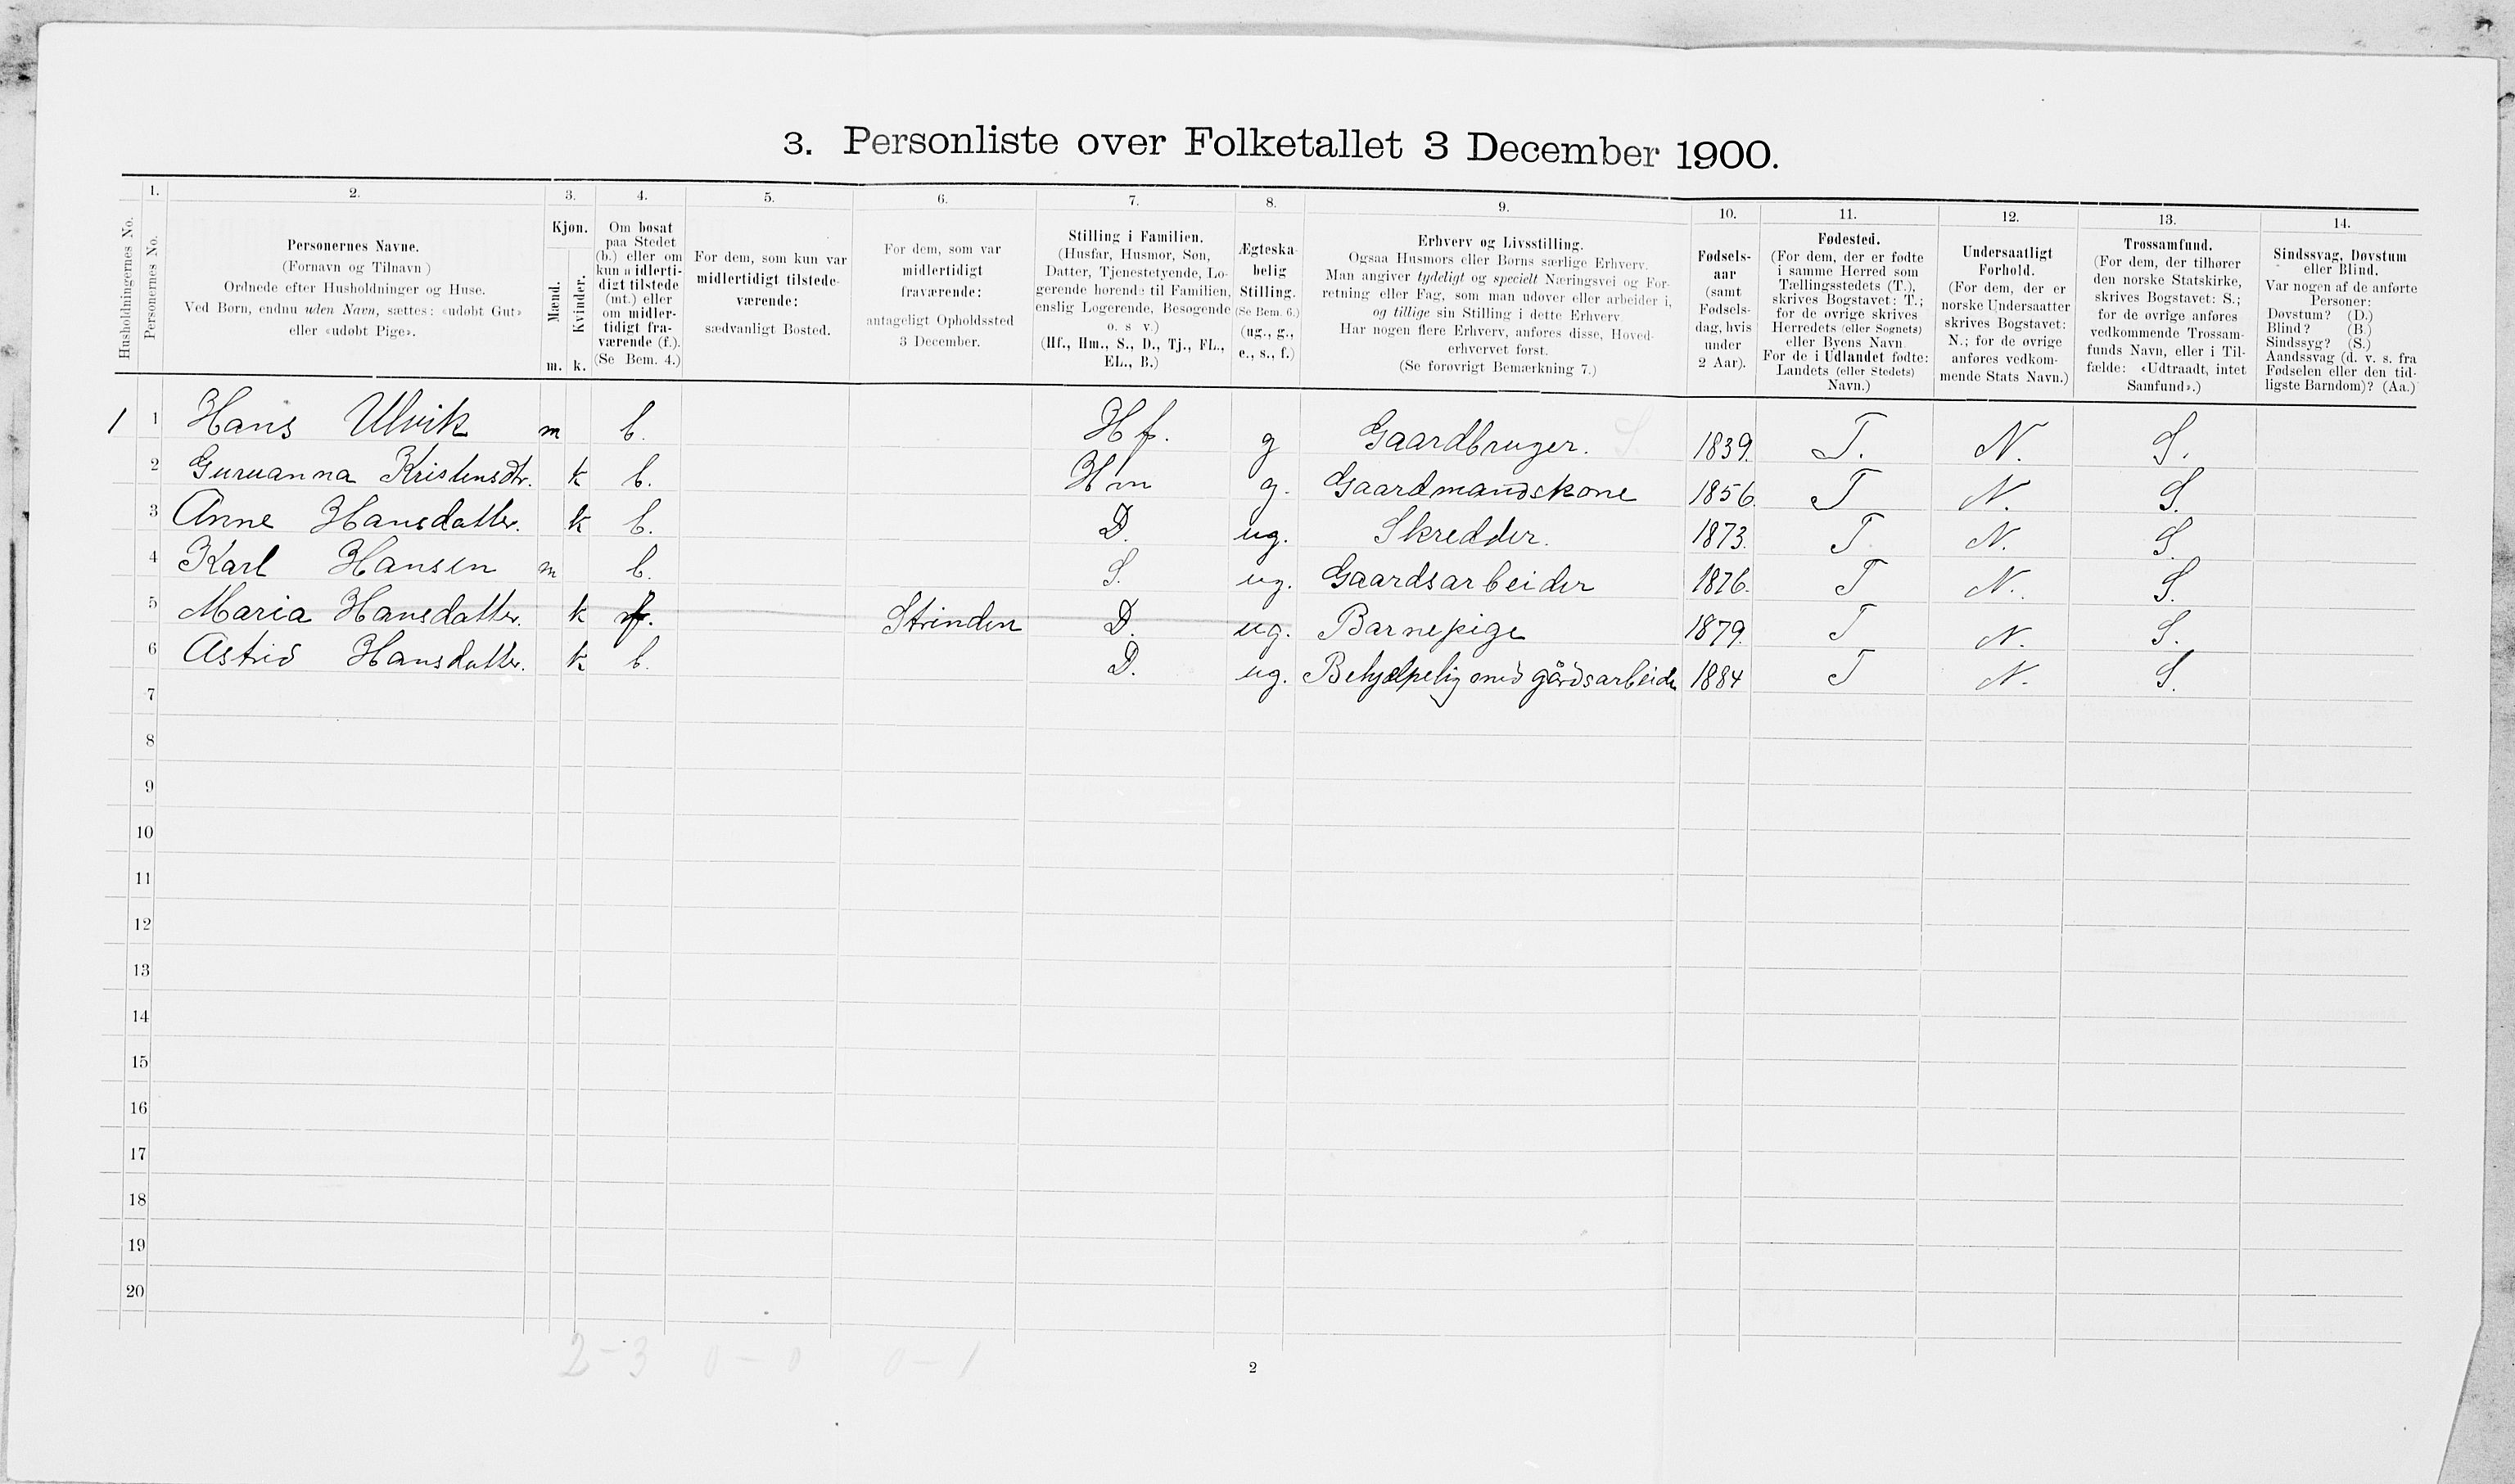 3. Personliste over Folketallet 3 December 1900.
Husholdningernes No.
1.
Personernes No.
2.
Personernes Navne.
(Fornavn og Tilnavn)
Ordnede efter Husholdninger og Huse.
Ved Børn, endnu uden Navn, sættes: «udøbt Gut»
eller «udøbt Pige».
3.
Kjøn.
Mænd.
Kvinder.
m. k.
4.
Om bosat
paa Stedet
(b.) eller om
kun midlerti-
digt tilstede
(mt.) eller
om midler-
tidigt fra-
værende (f.).
(Se Bem. 4.)
5.
For dem, som kun var
midlertidigt tilstede-
værende:
sædvanligt Bosted.
6.
For dem, som var
midlertidigt
fraværende:
antageligt Opholdssted
3 December.
7.
Stilling i Familien.
(Husfar, Husmor, Søn,
Datter, Tjenestetyende, Lo-
gerende hørende til Familien,
enslig Logerende, Besøgende
o. s v.)
(Hf., Hm., S., D., Tj., FL.,
EL., B.)
8.
Ægteska-
belig
Stilling.
(Se Bem. 6.)
(ug., g.,
e., s., f.)
9.
Erhverv og Livsstilling.
Ogsaa Husmors eller Børns særlige Erhverv.
Man angiver tydeligt og specielt Næringsvei og For-
retning eller Fag, som man udøver eller arbeider i,
og tillige sin Stilling i dette Erhverv
Har nogen flere Erhverv, anføres disse, Hoved-
erhvervet først.
(Se forøvrigt Bemærkning 7.)
10.
Fødsels-
aar
(samt
Fødsels-
dag, hvis
under
2 Aar).
11.
Fødested.
(For dem, der er fødte
i samme Herred som
Tællingsstedets (T.),
skrives Bogstavet: T.;
for de øvrige skrives
Herredets (eller Sognets)
eller Byens Navn.
For de i Udlandet fødte:
Landets (eller Stedets)
Navn.)
12.
Undersaatligt
Forhold.
(For dem, der er
norske Undersaatter
skrives Bogstavet:
N.; for de øvrige
anføres vedkom-
mende Stats Navn.)
13.
Trossamfund.
(For dem, der tilhører
den norske Statskirke,
skrives Bogstavet: S.;
for de øvrige anføres
vedkommende Trossam-
funds Navn, eller i Til-
fælde: «Udtraadt, intet
Samfund».)
14.
Sindssvag, Døvstum
eller Blind.
Var nogen af de anførte
Personer:
Døvstum? (D.)
Blind? (B.)
Sindssyg? (S.)
Aandssvag (d. v. s. fra
Fødselen eller den tid-
ligste Barndom)? (Aa.)
1 1 Hans Ulvik m b. Hf. g Gaardbruger. S. 1839. T. N. S.
2 Guruanna Kristensdtr. k b. Hm g. Gaardmandskone 1856. T N. S.
3 Anne Hansdatter. k b. D. ug. Skredder. 1873. T N. S.
4 Karl Hansen m b. S. ug. Gaardsarbeider 1876. T N. S.
5 Maria Hansdatter. k f. Strinden D. ug. Barnepige 1879. T N. S.
6 Astrid Hansdatter. k b. D. ug. Behjælpelig med gårdsarbeide 1884 T N. S.
7
8
9
10
11
12
13
14
15
16
17
18
19
20
2-3 0-0 0-1
2